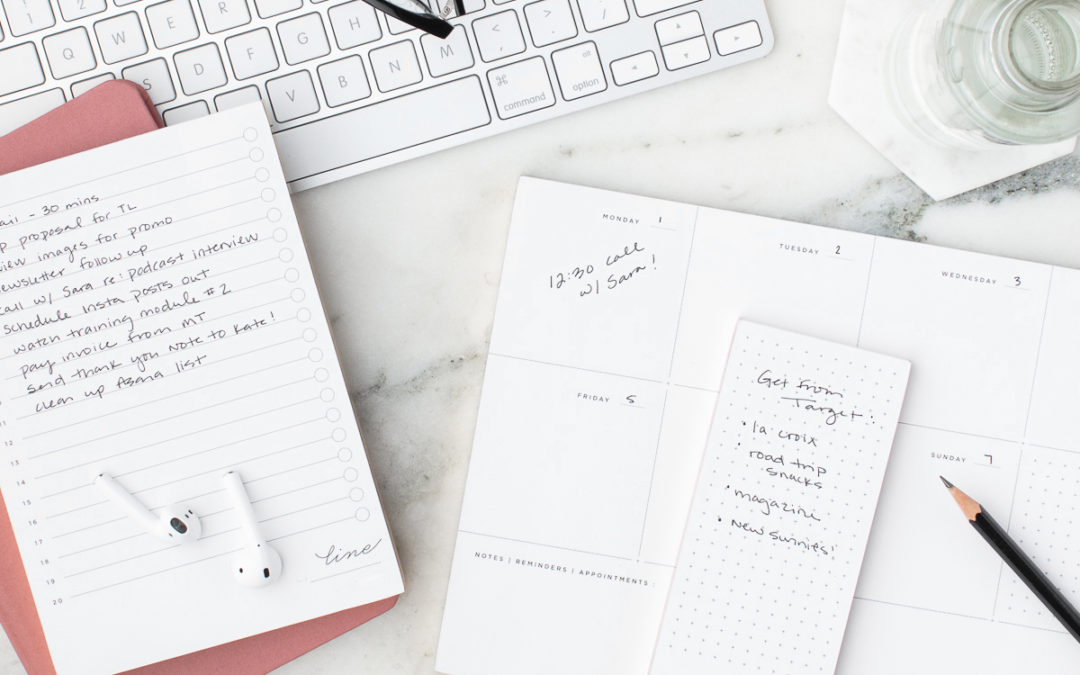 Q W E R
S D F G H
V B N M < , > . ? /
⌘ command
alt option
- 30 mins
proposal for TL
images for promo
newsletter follow up
call w/ Sara re: podcast interview
schedule insta posts out
watch training module #2
pay invoice from MT
send thank you note to Kate!
clean up Asana list
11
13
14
15
16
17
18
19
20
line
MONDAY 1
12:30 call
w/ Sara!
TUESDAY 2
WEDNESDAY 3
FRIDAY 5
SUNDAY 7
NOTES | REMINDERS | APPOINTMENTS :
Get from
Target:
• la croix
• road trip
snacks
• magazine
• new sunnies!